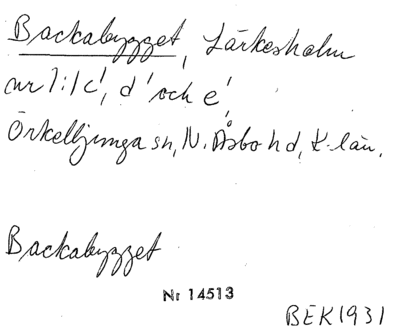 Backabygget, Lärkesholm
nr 1:1 c', d' och e',
Örkelljunga sn, N. Åsbo hd, K-län.
Backabygget
Nr 14513
BEK 1931